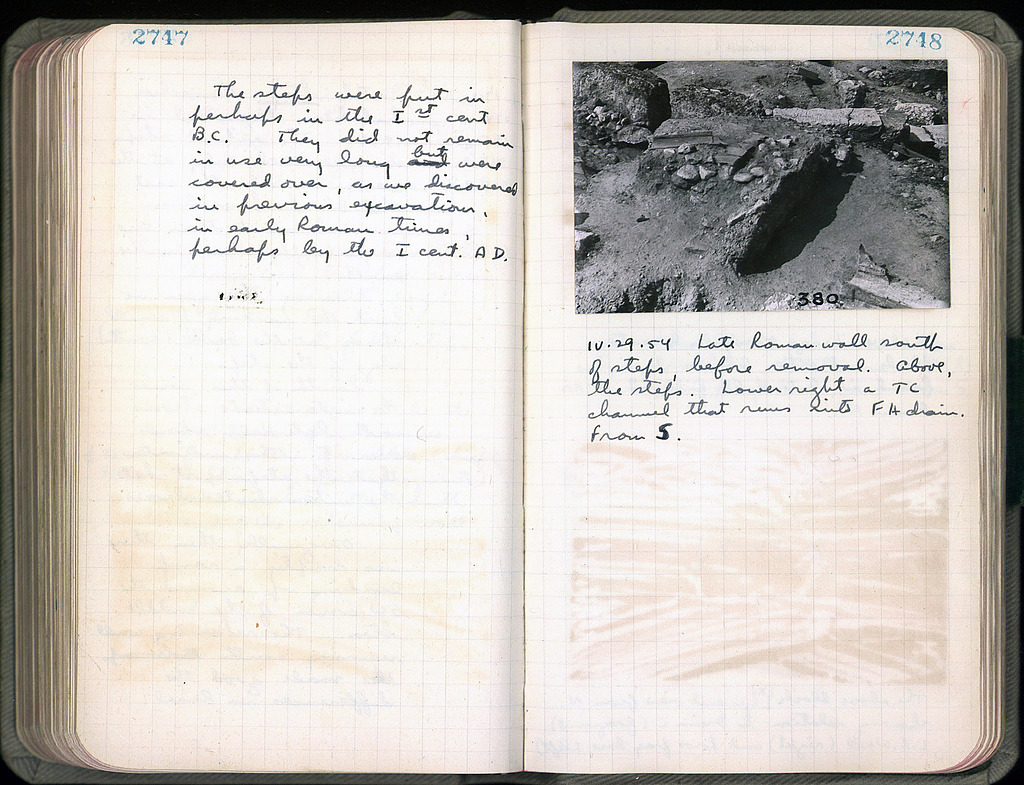 2747
The steps were put in
perhaps in the I st cent
B.C. They did not remain
in use very long but were
covered over, as we discovered
in previous excavations,
in early Roman times,
perhaps by the I cent. A D.
2748
380
IV.29.54 Late Roman wall south
of steps, before removal. Above,
the steps. Lower right a TC
channel that runs into F H drain.
From S.